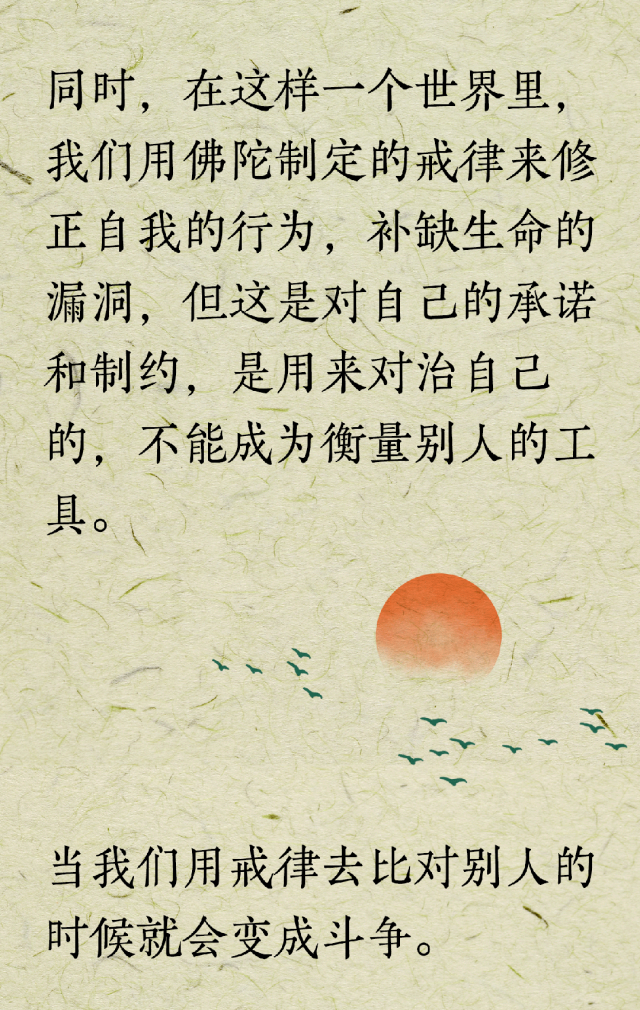 同时，在这样一个世界里，
我们用佛陀制定的戒律来修
正自我的行为，补缺生命的
漏洞，但这是对自己的承诺
和制约，是用来对治自己
的，不能成为衡量别人的工
具。
当我们用戒律去比对别人的
时候就会变成斗争。